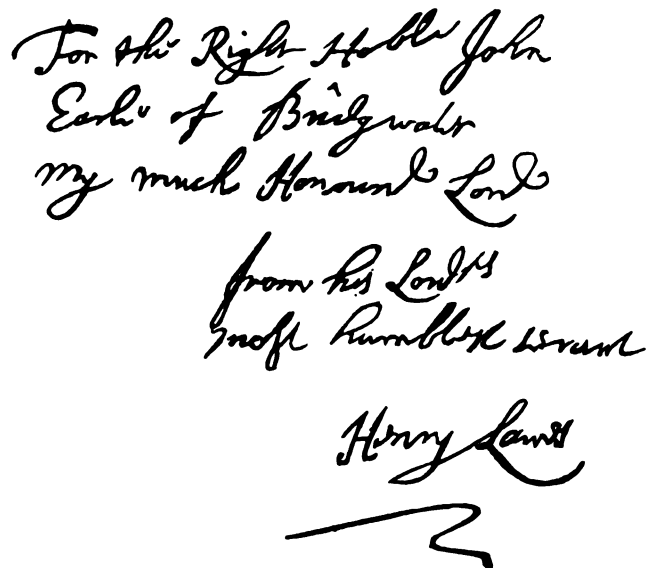 For the Right Hoble John
Earle of Bridgwater
My much Honourd Lord
from his Lordps
most humblest servant
Henry Lawes